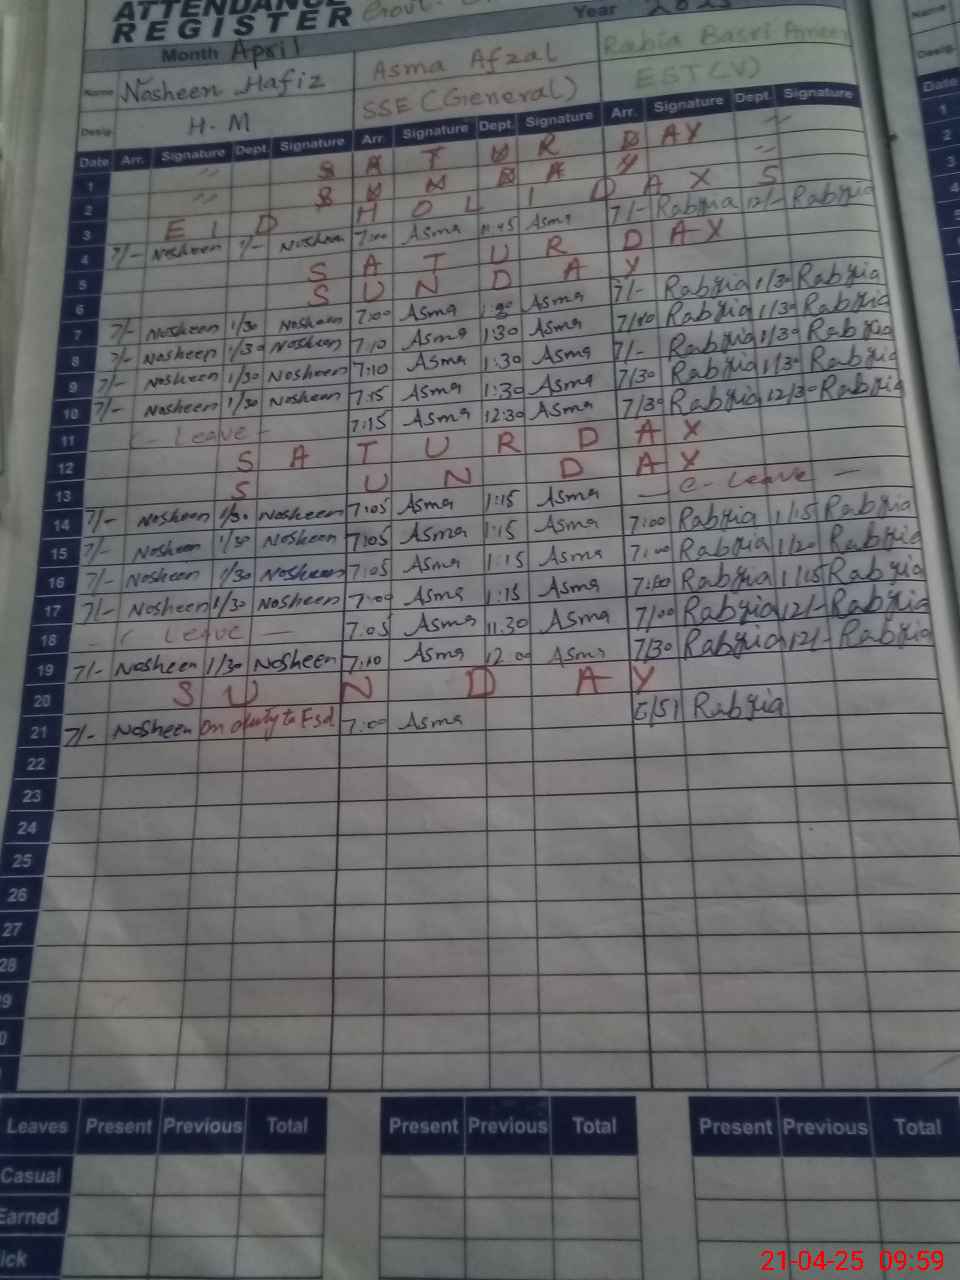 ATTENDANCE
REGISTER Govt.
Year 2025
Month April
Name Nosheen Hafiz Asma Afzal Rabia Basri
Desig. H.M SSE (General) EST (V)
Date Arr. Signature Dept. Signature Arr. Signature Dept. Signature Arr. Signature Dept. Signature
1 S A T U R D A Y
2 S U N D A Y
3 E I D H O L I D A Y S
4 7/- Nosheen Nosheen 7:00 Asma 11:45 Asma 7/- Rabyia 12/- Rabyia
5 S A T U R D A Y
6 S U N D A Y
7 7/- Nosheen 1/30 Nosheen 7:00 Asma Asma 7/- Rabyia 1/30 Rabyia
8 7/- Nosheen 1/30 Nosheen 7:10 Asma 1:30 Asma 7/10 Rabyia 1/30 Rabyia
9 7/- Nosheen 1/30 Nosheen 7:10 Asma 1:30 Asma 7/- Rabyia 1/30 Rabyia
10 7/- Nosheen 1/30 Nosheen 7:15 Asma 1:30 Asma 7/30 Rabyia 1/30 Rabyia
11 Leave 7:15 Asma 12:30 Asma 7/30 Rabyia 12/30 Rabyia
12 S A T U R D A Y
13 S U N D A Y
14 7/- Nosheen 1/30 Nosheen 7:05 Asma 1:15 Asma C- Leave
15 7/- Nosheen 1/30 Nosheen 7:05 Asma 1:15 Asma 7:00 Rabyia 1/15 Rabyia
16 7/- Nosheen 1/30 Nosheen 7:05 Asma 1:15 Asma 7:00 Rabyia 1/20 Rabyia
17 7/- Nosheen 1/30 Nosheen 7:00 Asma 1:15 Asma 7:00 Rabyia 1/15 Rabyia
18 C Leave 7:05 Asma 11:30 Asma 7/00 Rabyia 12/- Rabyia
19 7/- Nosheen 1/30 Nosheen 7:10 Asma 12:00 Asma 7/30 Rabyia 12/- Rabyia
20 S U N D A Y
21 7/- Nosheen On duty to Fsd 7:00 Asma Rabyia
22
23
24
25
26
27
28
9
0
Leaves Present Previous Total Present Previous Total Present Previous Total
Casual
Earned
ick
Name
Desig.
Date
1
2
3
4
5
6
7
21-04-25 09:59